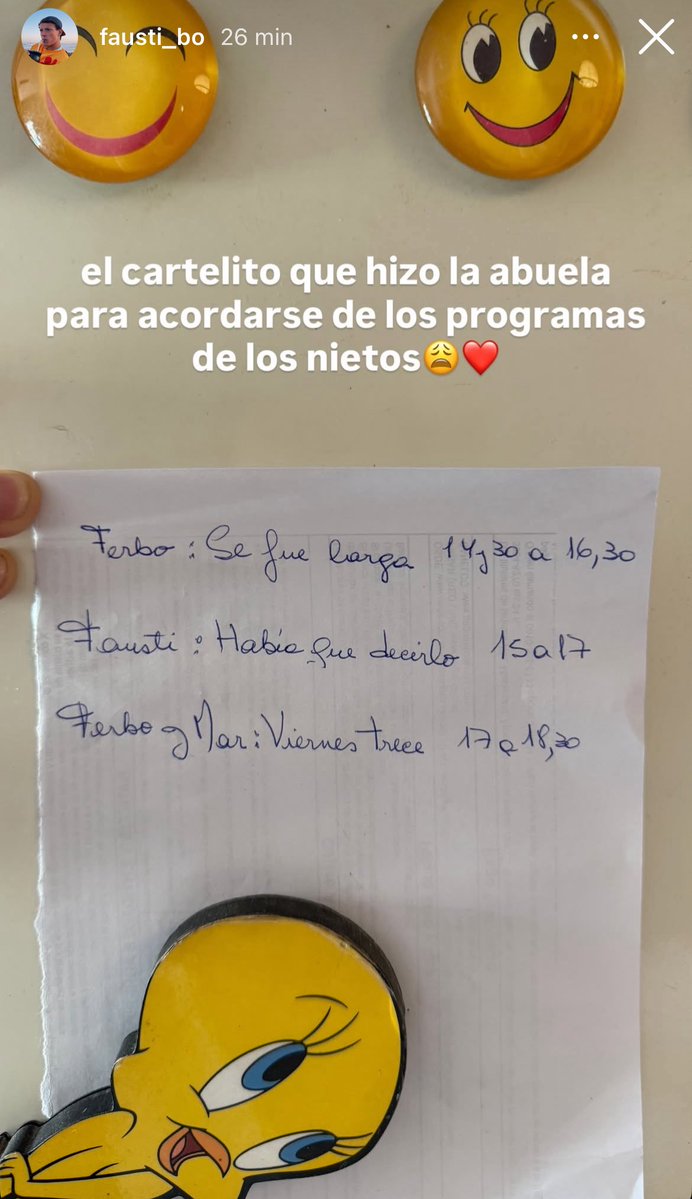 fausti_bo 26 min
el cartelito que hizo la abuela
para acordarse de los programas
de los nietos😩❤️
Ferbo : Se fue larga 14,30 a 16,30
Fausti : Había que decirlo 15 a 17
Ferbo y Mar : Viernes trece 17 a 18,30